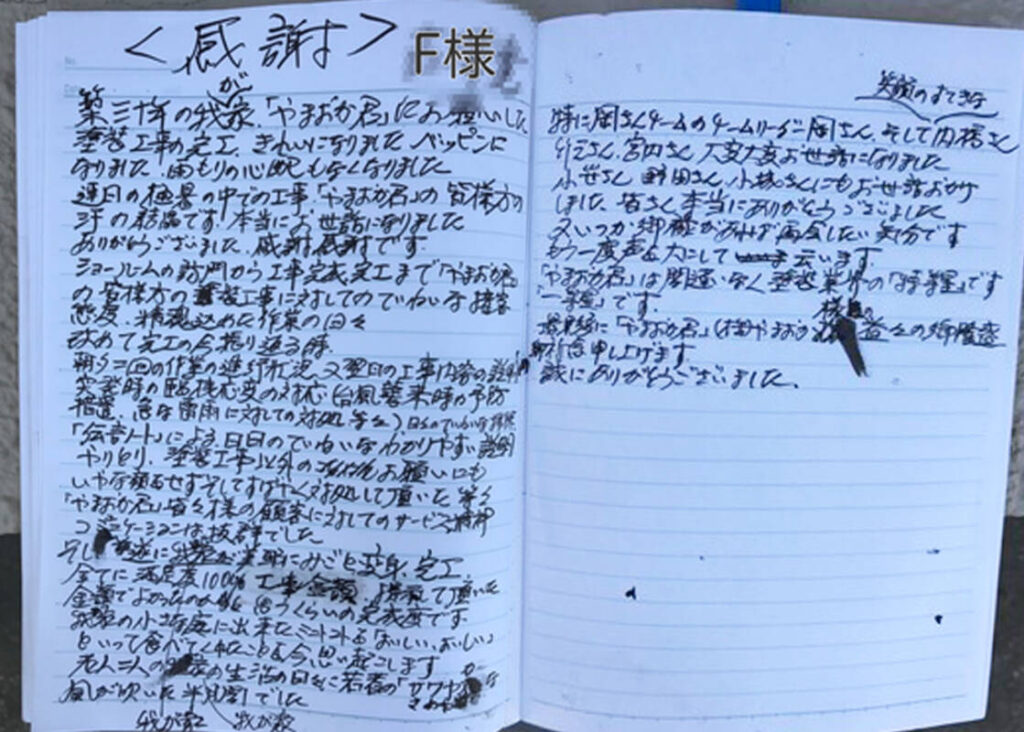 <感謝> F様
築三十年の我が家「やまおか君」にお願いした
塗装工事の完工、きれいになりました ベッピンに
なりました 雨もりの心配もなくなりました
連日の極暑の中での工事「やまおか君」の皆様方の
汗の結晶です 本当にお世話になりました
ありがとうございました、感謝感謝です
ショールームの訪問から工事完成完工まで「やまおか君」
の皆様方の塗装工事に対してのていねいな接客
態度、精魂込めた作業の日々
改めて完工の今振り返る時
朝夕二回の作業の進行状況、又翌日の工事内容の説明
突発時の臨機応変の対応(台風襲来時の予防
措置、急な雷雨に対しての対処等々)日々のていねいな
「伝言ノート」による日日のていねいなわかりやすい説明
やりとり、塗装工事以外の お願いにも
いやな顔もせずそしてすばやく対処して頂いた 等々
「やまおか君」皆々様の顧客に対してのサービス精神
コミュニケーションは抜群でした
そして 我家が美邸にみごと変身、完工
全てに満足度100% 工事金額 して頂いた
金額でよかったのか くらいの完成度です
我家の小さな庭に出来たミニトマトを「おいしい、おいしい」
といって食べてくれたことも今思い起こします
老人二人の の生活の日々に若者の「サワヤカ」な
風が吹いた半月間でした
我が家 我が家
笑顔のすてきな
特に岡さんチームのチームリーダー岡さん、そして内橋さん
さん、宮内さん 大変大変お世話になりました
小笹さん 野田さん、小林さんにもお世話おかけ
しました 皆さん本当にありがとうございました
又いつか御縁があれば再会したい気分です
もう一度声を大にして 云います
「やまおか君」は間違いなく塗装業界の です
「一番星」です。
最後に「やまおか君」(株)やまおか様 益々の御隆盛
お祈り申し上げます
誠にありがとうございました。